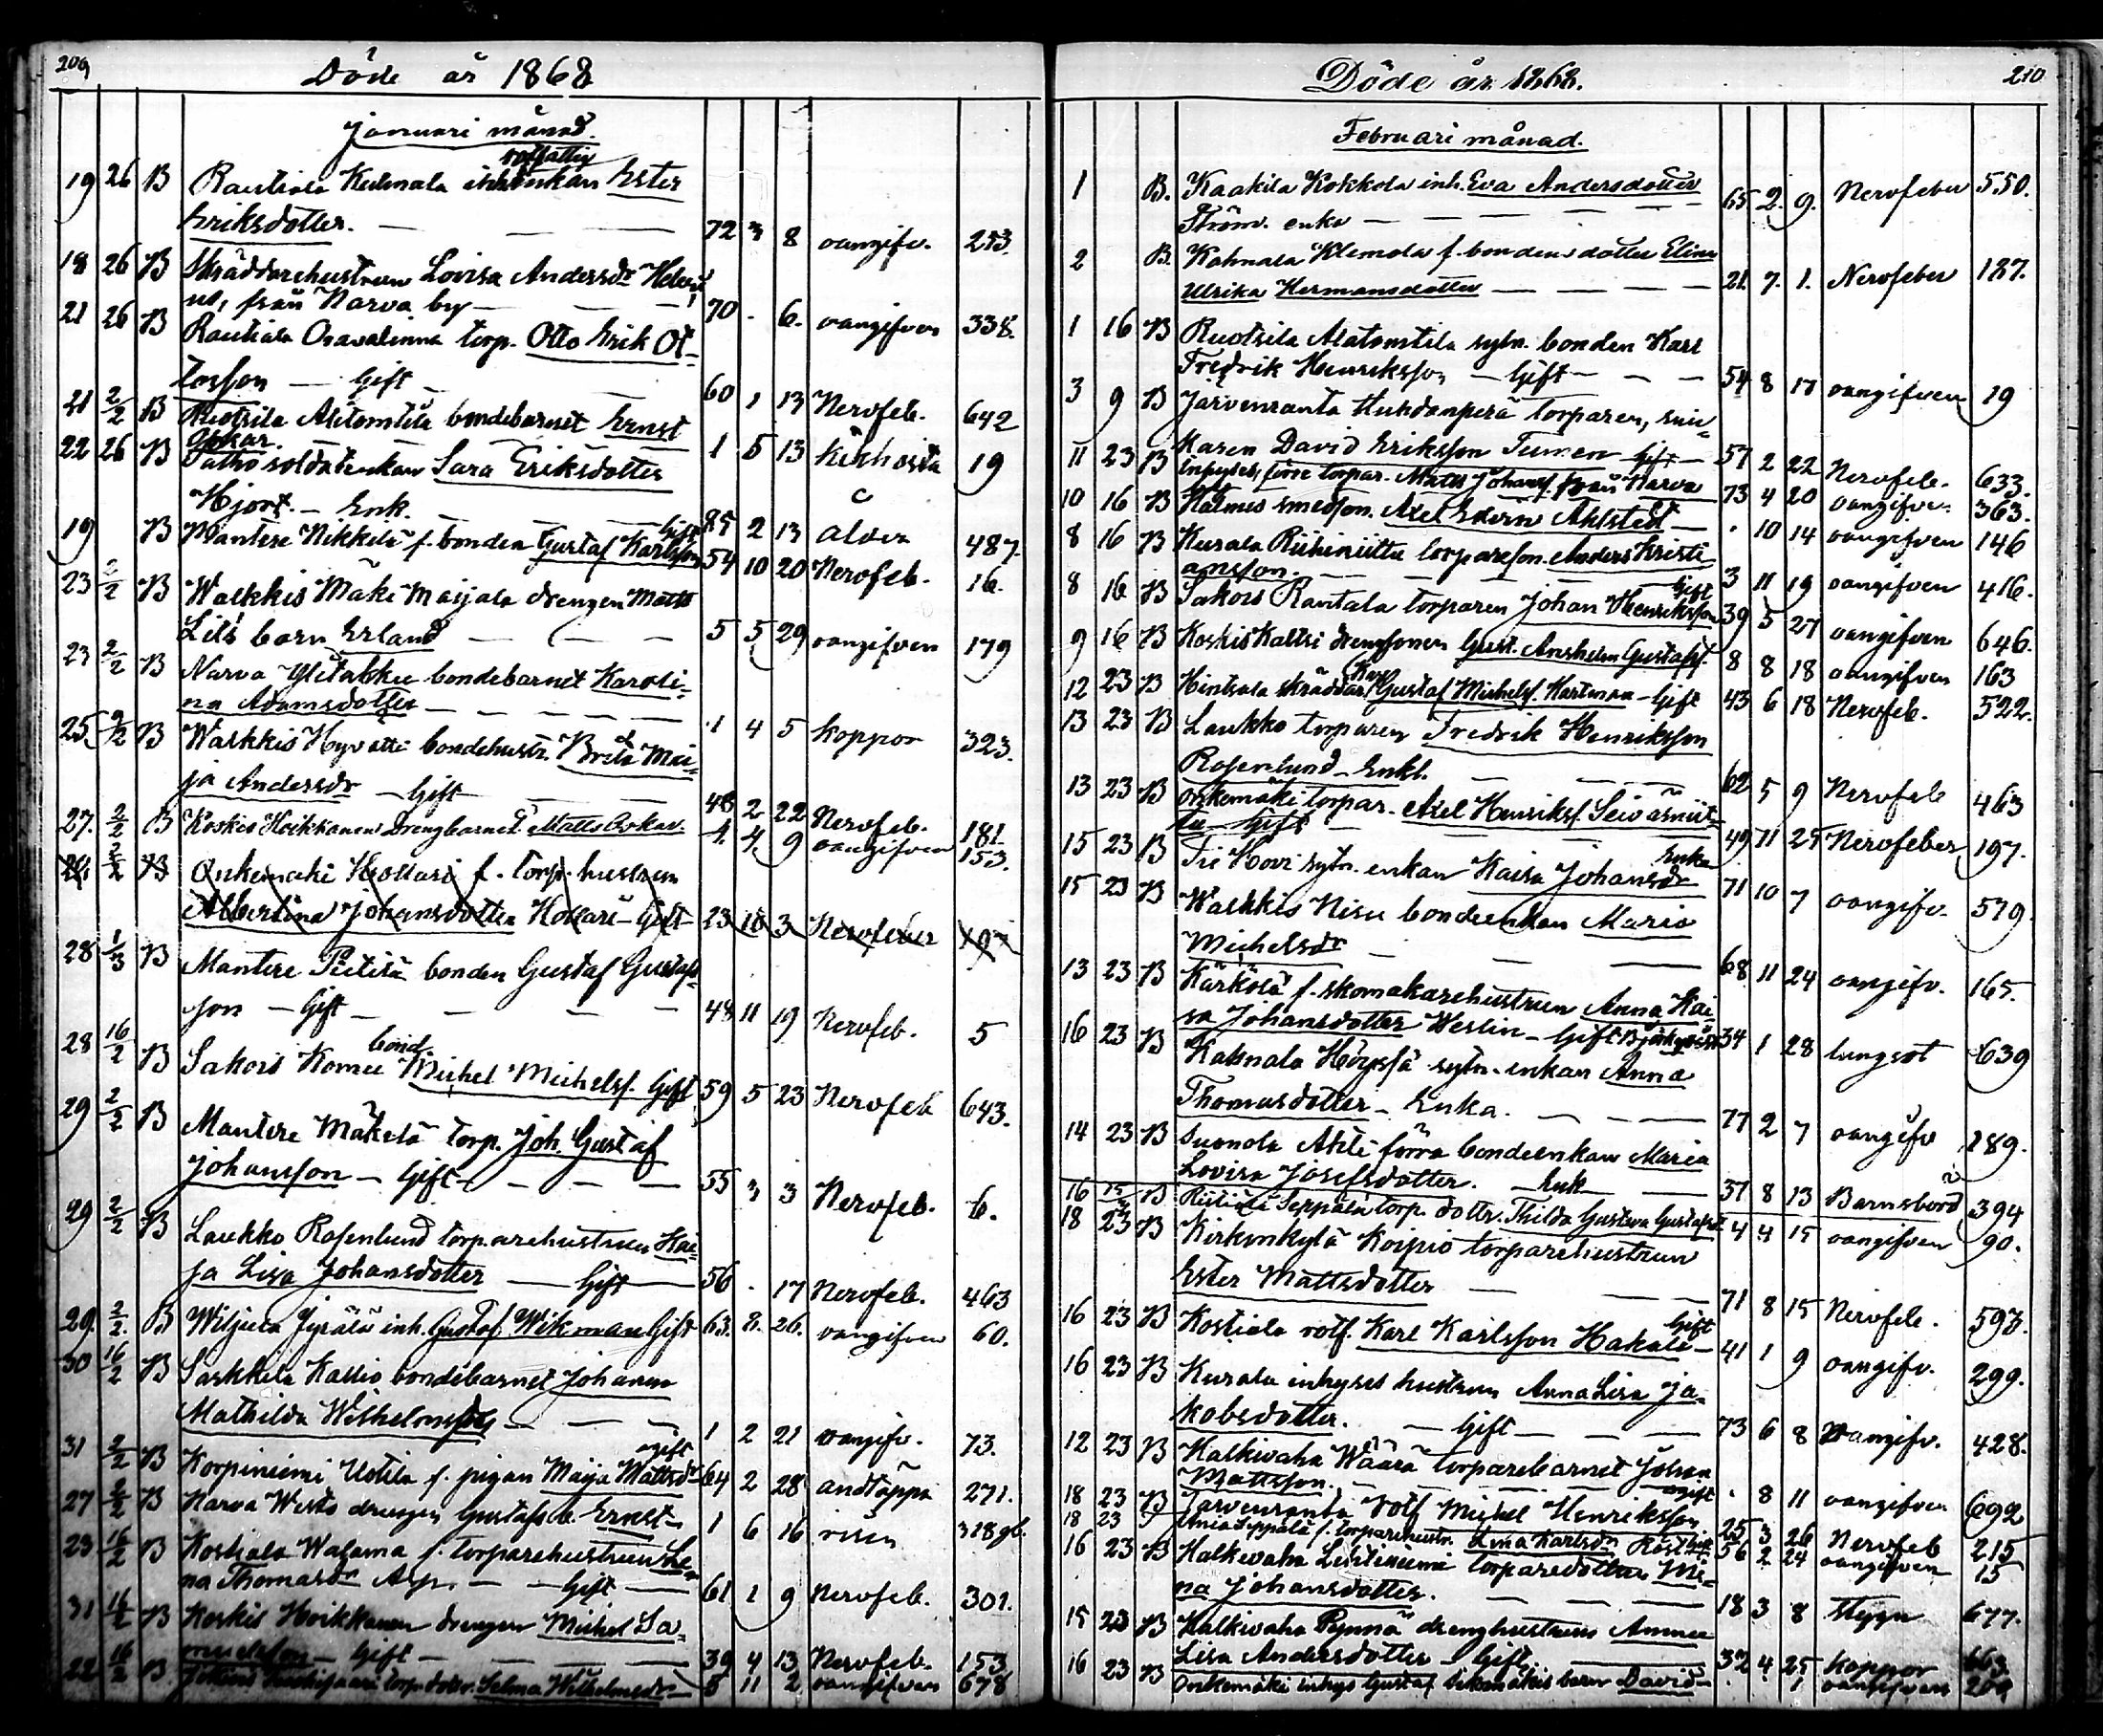 209
Döde år 1868
Januari månad.
rotfattig
19 26 B Rautiala Keilmala enkan Ester
Eriksdotter. 72 3 8 oangifv. 253.
18 26 B Skräddarehustrun Lovisa Andersdr
från Narva by 70 . 6. oangifven 338.
21 26 B Rautiala torp. Otto Erik Ot-
tosson Gift 60 1 13 Nervfeb. 642
21 2/2 B Ruotsila Alitomtila bondebarnet Ernst
Oskar. 1 5 13 kikhosta 19
22 26 B soldatenkan Sara Eriksdotter
Hjort. Enk. 85 2 13 ålder 487
19 B Mantere Nikkilä f. bonden Gustaf Karlsson Gift 54 10 20 Nervfeb. 16.
23 2/2 B Walkkis Mäki Maijala drengen Matts
barn Erland 5 5 29 oangifven 179
23 2/2 B Narva Ylitakku bondebarnet Karoli-
na Adamsdotter 1 4 5 koppor 323.
25 2/2 B Walkkis Hyvätti bondehustr. Brita Mai-
ja Andersdr Gift 48 2 22 Nervfeb. 181.
27. 2/2 B Koskis Hoikkanen drengbarnet Matts Oskar. 4. 4. 9 oangifven 153.
2/2 B Onkemäki Hollari f. torp. hustrun
Albertina Johansdotter Hollari Gift 23 10 3 Nervfeber 197
28 1/3 B Mantere Pietilä bonden Gustaf Gustafs-
son Gift 48 11 19 Nervfeb. 5
28 16/2 B Sakois Komu bond. Michel Michelsf. Gift 59 5 23 Nervfeb 643.
29 2/2 B Mantere Mäkelä torp. Joh. Gustaf
Johansson Gift 55 3 3 Nervfeb. 6.
29 2/2 B Laukko Rosenlund torparehustrun Kai-
ja Lisa Johansdotter Gift 56 . 17 Nervfeb. 463
29. 2/2. B Wiljula Jyrälä inh. Gustaf Wikman Gift 63. 8. 26. oangifven 60.
30 16/2 B Sarkkila Kallio bondebarnet Johanna
Mathilda 1 2 21 oangifv. 73.
31 2/2 B Korpiniemi Uotila f. pigan Maija Mattsdr ogift 64 2 28 andtäppa 271.
27 2/2 B Narva drengen Gustafs b. Ernst 1 6 16 328 gb.
23 16/2 B Kostiala Wasama f. torparehustrun Le-
na Thomasdr Gift 61 1 9 Nervfeb. 301.
31 16/2 B Koskis Hoikkanen drengen Michel Sa-
muelsson Gift 39 4 13 Nervfeb. 153
22 16/2 B torp. dottr. Selma Wilhelmsdr 5 11 2 oangifven 678
210
Döde år 1868.
Februari månad.
1 B. Kaakila Kokkola inh. Eva Andersdotter
Ström. enka 65 2. 9. Nervfeber 550.
2 B. Kahnala Klemola f. bondens dotter Elina
Ulrika Hermansdotter 21. 7. 1. Nervfeber 187.
1 16 B Ruotsila Alatomtila sytn. bonden Karl
Fredrik Henriksson Gift 54 8 17 oangifven 19
3 9 B Järvenranta Huhdanperä torparen, sni-
karen David Eriksson Tumen Gift 57 2 22 Nervfeb. 633.
11 23 B Inhyses, förre torpar. Matts Johansf. från Narva 73 4 20 oangifven 363.
10 16 B Halmes smedson Axel Edvin Ahlsted . 10 14 oangifven 146
8 16 B Kurala Riihiniittu torpareson Anders Kristi-
ansson. 3 11 19 oangifven 416.
8 16 B Sakois Rantala torparen Johan Henriksson Gift 39 5 27 oangifven 646.
9 16 B Koskis Kaltsi drengsonen Gust. Anshelm Gustafsf. 8 8 18 oangifven 163
12 23 B Hinsala skräddar Gustaf Michelsf. Hartman Gift 43 6 18 Nervfeb. 522.
13 23 B Laukko torparen Fredrik Henriksson
Rosenlund Enkl. 62 5 9 Nervfeb 463
13 23 B Onkemäki torpar. Axel Henriksf. Seivasniit-
tu Gift 49 11 25 Nervfeber 197.
15 23 B Tie Hovi sytn. enkan Kaisa Johansdr Enka 71 10 7 oangifv. 579.
15 23 B Walkkis Nisu bondeenkan Maria
Michelsdr 68 11 24 oangifv. 165.
13 23 B Kärkölä f. skomakarehustrun Anna Kai-
sa Johansdotter Weslin Gift 34 1 28 lungsot 639
16 23 B Kahnala Hörpsä sytn. enkan Anna
Thomasdotter Enka. 77 2 7 oangifv 189.
14 23 B Suonola Ahti förra bondeenkan Maria
Lovisa Josefsdotter. Enk 37 8 13 Barnsbörd 394
16 B Seppälä torp. dottr. Thilda Gustava Gustafsd. 4 4 15 oangifven 90.
18 23 B Kirkonkylä Koipio torparehustrun
Ester Mattsdotter 71 8 15 Nervfeb. 593.
16 23 B Kostiala rotf. Karl Karlsson Hakala Gift 41 1 9 oangifv. 299.
16 23 B Kurala inhyses hustrun Anna Lisa Ja-
kobsdotter. Gift 73 6 8 oangifv. 428.
12 23 B Halkivaha Wäärä torparebarnet Johan
Mattsson. . 8 11 oangifven 692
18 23 B Järvenranta rotf. Michel Henriksson ogift 25 3 26 Nervfeb 215
18 23 Seppälä f. torparehustr. Karlsdr 56 2 24 oangifven 15
16 23 B Halkivaha Lehtiniemi torparedottern Mi-
na Johansdotter. 18 3 8 Stygn 677.
15 23 B Halkivaha Pynnä drenghustrun Anna
Lisa Andersdotter Gift. 32 4 25 koppor 663
16 23 B Onkemäki inhys Gustaf barn David oangifven